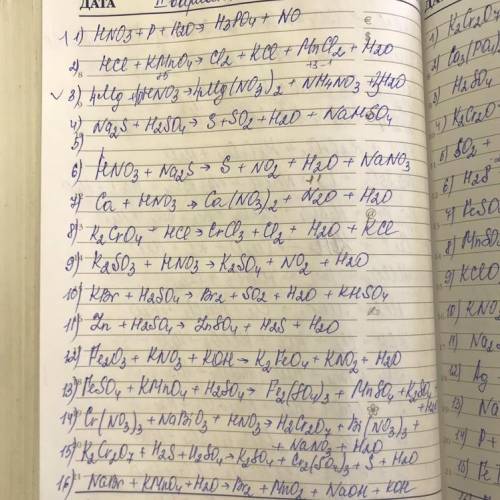 ДАТА II вариант
1 1) HNO3 + P + H2O → H3PO4 + NO
2) HCl + KMnO4 → Cl2 + KCl + MnCl2 + H2O
3) 4Mg + HNO3 → 4Mg(NO3)2 + NH4NO3 + 3H2O
4) Na2S + H2SO4 → S + SO2 + H2O + NaHSO4
5)
6) HNO3 + Na2S → S + NO2 + H2O + NaNO3
7) Ca + HNO3 → Ca(NO3)2 + N2O + H2O
8) K2CrO4 + HCl → CrCl3 + Cl2 + H2O + KCl
9) K2SO3 + HNO3 → K2SO4 + NO2 + H2O
10) KBr + H2SO4 → Br2 + SO2 + H2O + KHSO4
11) Zn + H2SO4 → ZnSO4 + H2S + H2O
12) Fe2O3 + KNO3 + KOH → K2FeO4 + KNO2 + H2O
13) FeSO4 + KMnO4 + H2SO4 → Fe2(SO4)3 + MnSO4 + K2SO4
+ H2O
14) Cr(NO3)3 + NaBiO3 + HNO3 → H2Cr2O7 + Bi(NO3)3 +
+ NaNO3 + H2O
15) K2Cr2O7 + H2S + H2SO4 → K2SO4 + Cr2(SO4)3 + S + H2O
16) NaBr + KMnO4 + H2O → Br2 + MnO2 + NaOH + KOH
ДА
1) K2Cr2O
2) Ca3(PO4)
3) H2SO4
4) K2Cr2O
5) SO2 +
6) H2S
7) FeSO4
8) MnSO4
9) KClO
10) KNO
11) Na2
12) Ag
13) Na
14) P +
15) Fe
16)